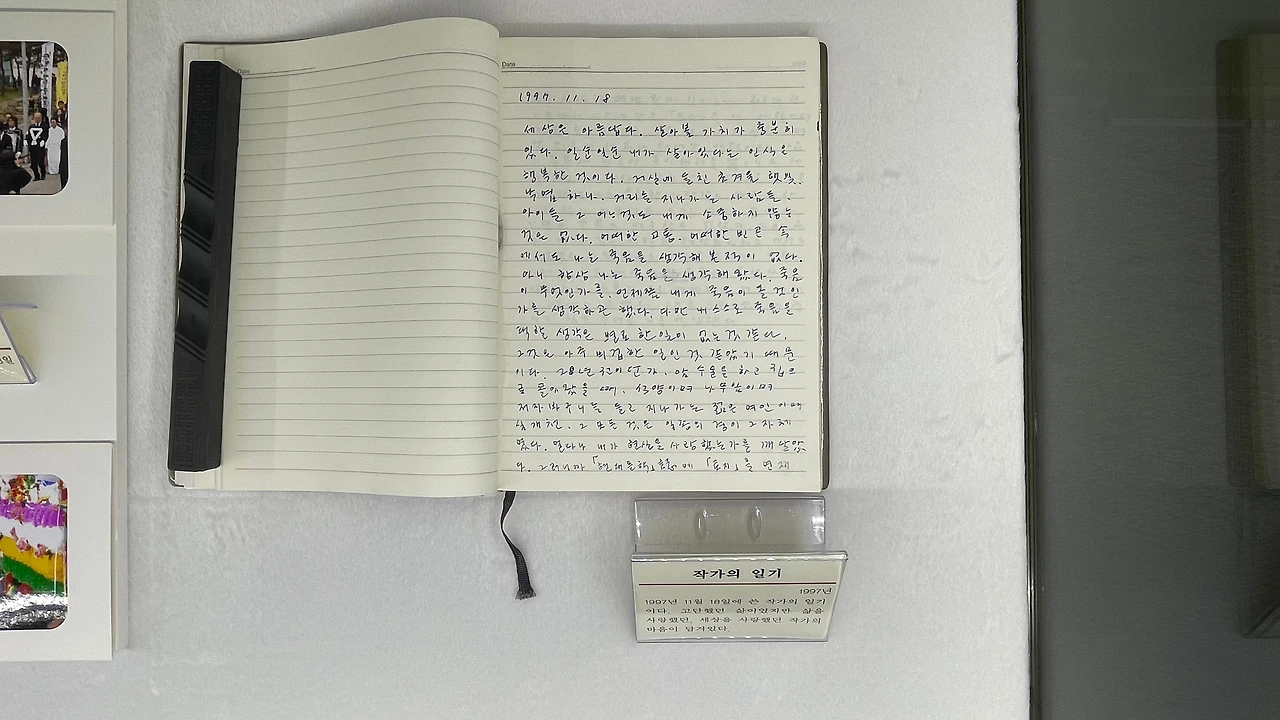 Date
Date
1997. 11. 18
세상은 아름답다. 살아볼 가치가 충분히
있다. 일순일순 내가 살아있다는 인식은
행복한 것이다. 거실에 놓친 초겨울 햇빛.
낙엽 하나. 거리를 지나가는 사람들.
아이들 그 어느것도 내게 소중하지 않는
것은 없다. 어떠한 고통. 어떠한 빈곤 속
에서도 나는 죽음을 생각해 본 적이 없다.
아니 항상 나는 죽음을 생각해 왔다. 죽음
이 무엇인가를. 언제쯤 내게 죽음이 올 것인
가를 생각하곤 했다. 다만 스스로 죽음을
택할 생각은 별로 한 일이 없는 것 같다.
그것은 아주 비겁한 일인 것 같았기 때문
이다. 암 수술을 하고 집으
로 돌아왔을 때. 석양이며 나무잎이며
지나가는 젊은 여인이며
그 모든 것은 그 자체
였다. 얼마나 내가 현실을 사랑했는가를 깨달았
다. 그러니까 「현대문학」 에 「토지」를 연재
작가의 일기
1997년
1997년 11월 18일에 쓴 작가의 일기
이다. 고단했던 삶이었지만 삶을
사랑했던, 세상을 사랑했던 작가의
마음이 담겨있다.